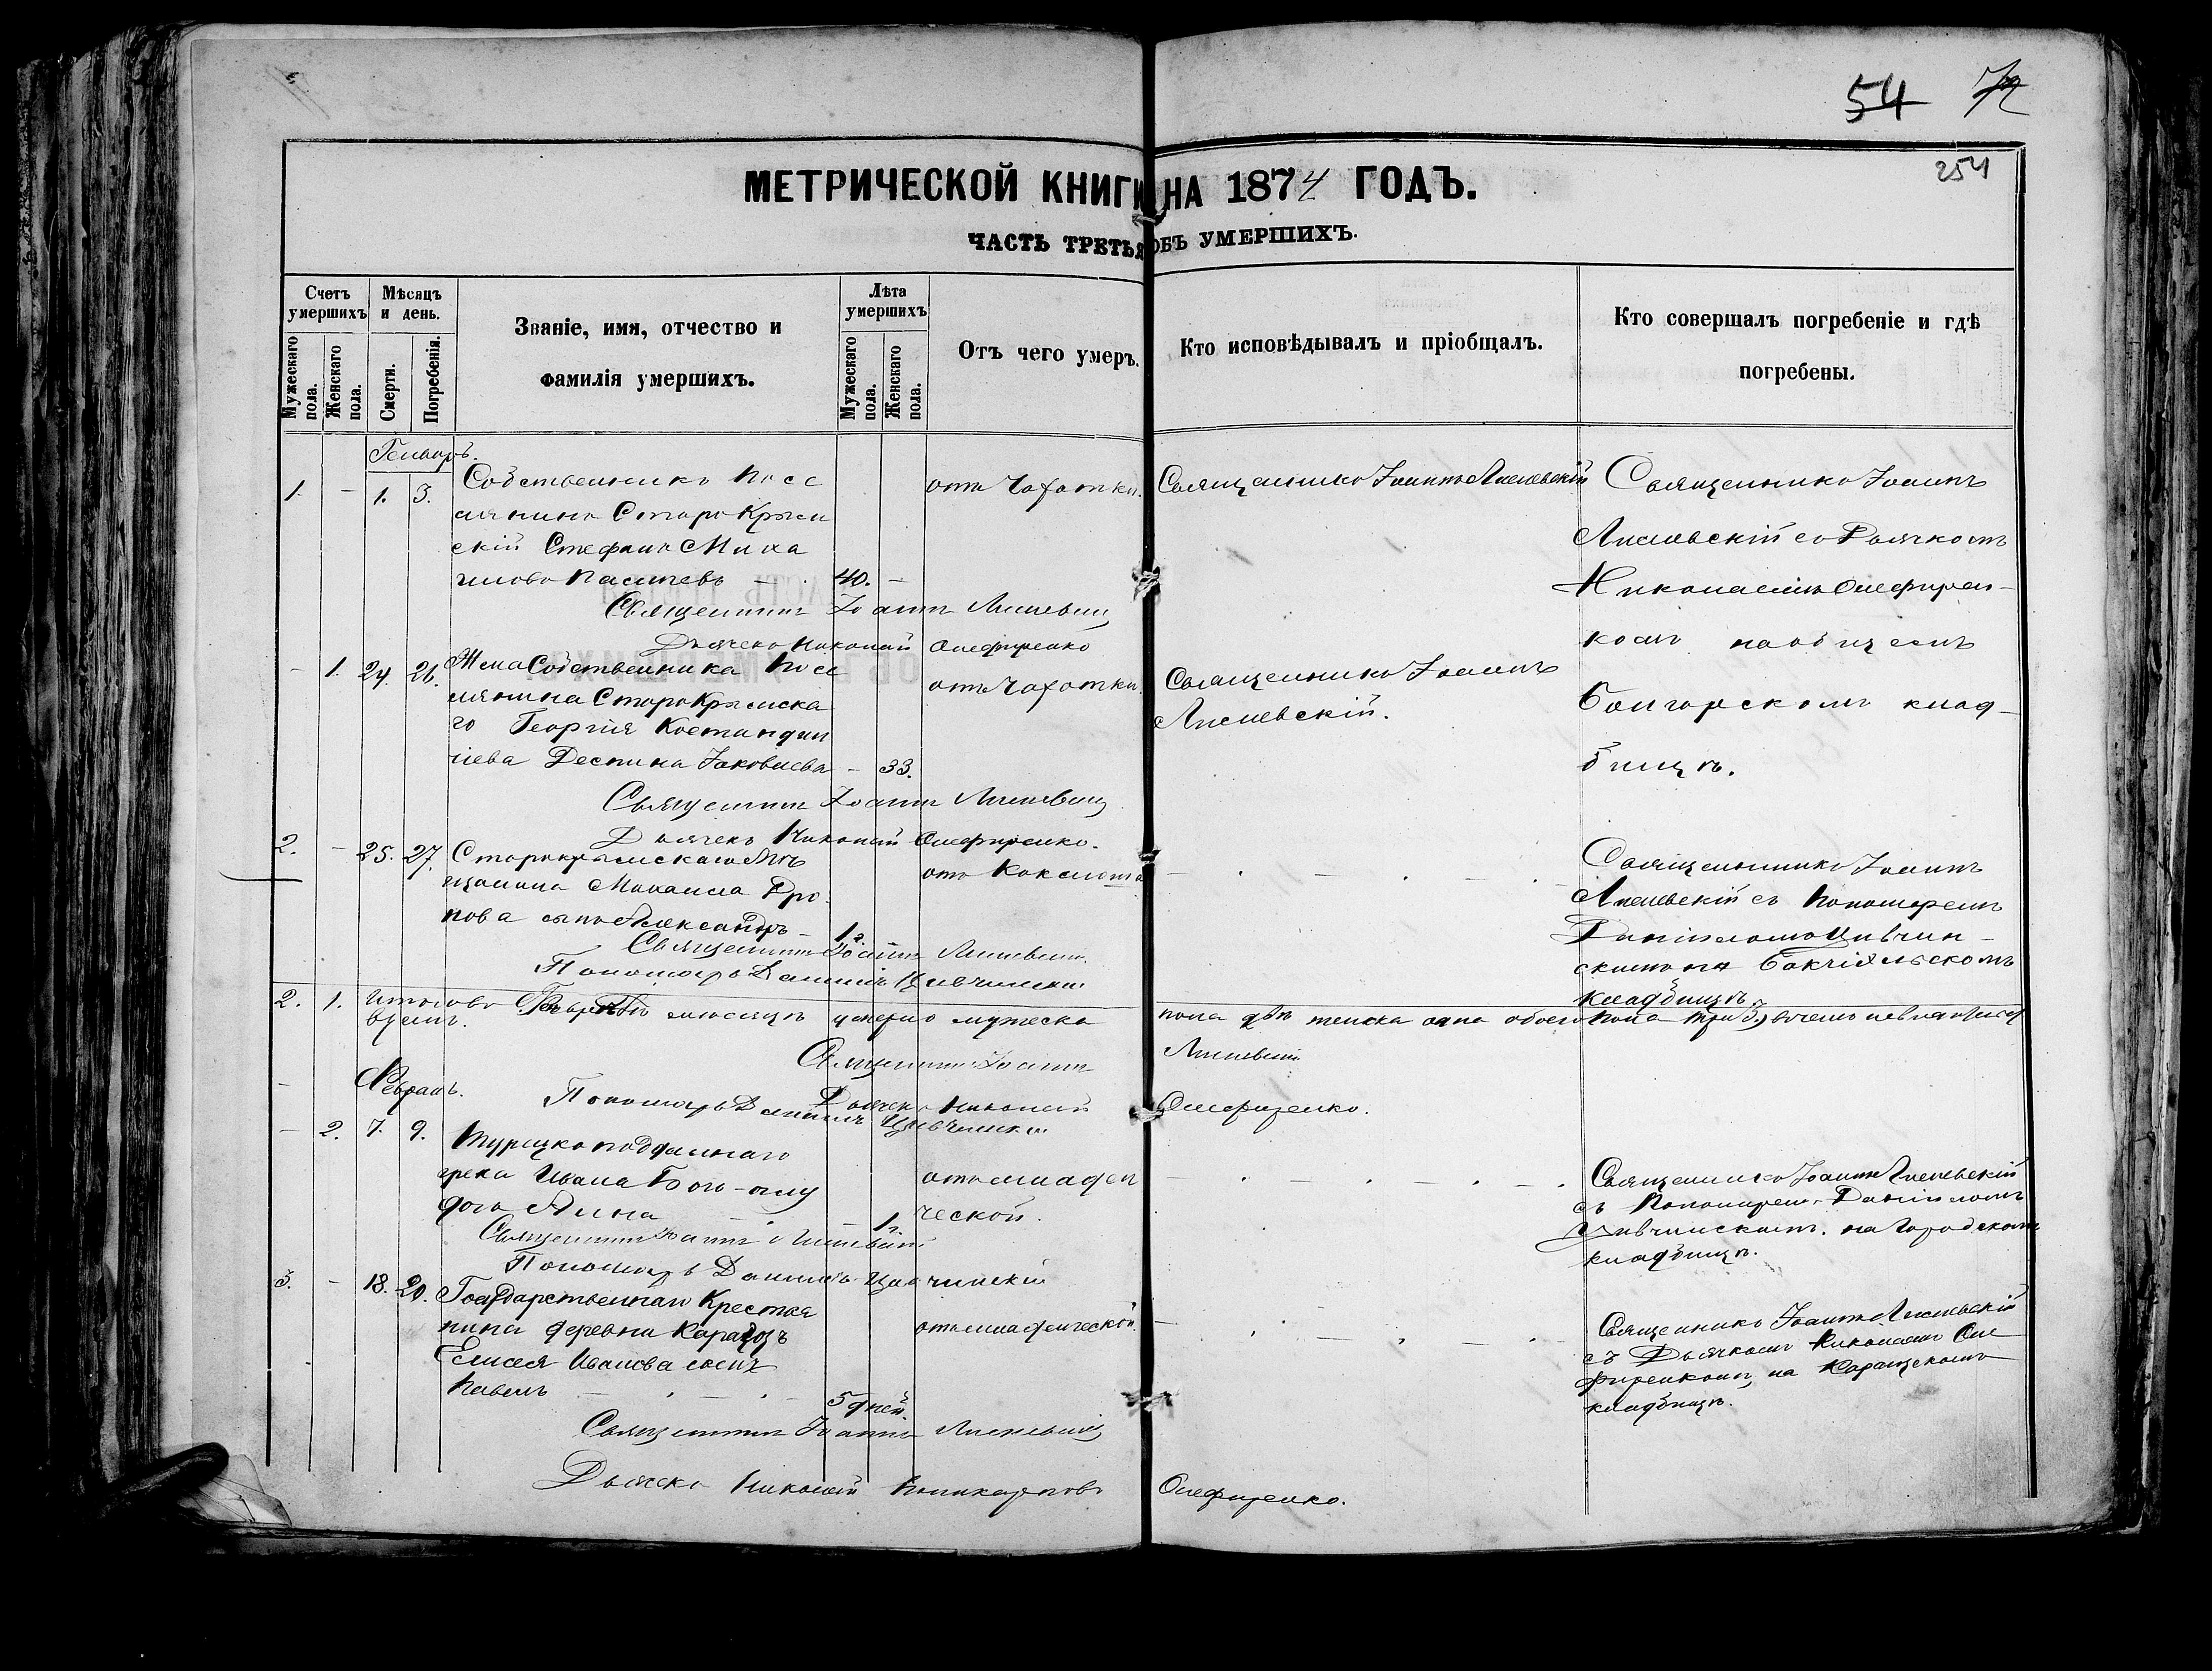 54 72
254
МЕТРИЧЕСКОЙ КНИГИ НА 1874 ГОДЪ.
ЧАСТЬ ТРЕТЬЯ ОБЪ УМЕРШИХЪ.
Счетъ умершихъ
Мужескаго пола.
Женскаго пола.
Мѣсяцъ и день.
Смерти.
Погребенія.
Званіе, имя, отчество и
фамилія умершихъ.
Лѣта умершихъ
Мужескаго пола.
Женскаго пола.
Отъ чего умеръ.
Кто исповѣдывалъ и пріобщалъ.
Кто совершалъ погребеніе и гдѣ
погребены.
Генварь.
1. – 1. 3.
Собственникъ посе
лянинъ Старо Крым
скій Стефанъ Миха
иловъ – 40. –
отъ Чахотки.
Священникъ Іоаннъ Лисневскій
Священникъ Іоаннъ
Лисневскій съ Дьячкомъ
Николаемъ Олефирен–
комъ на общемъ
Болгарскомъ клад–
бищѣ.
Священникъ Іоаннъ Лисневскій
Дьячекъ Николай Олефиренко
– 1. 24. 26.
Жена Собственника посе
лянина Старо Крымска
го Георгія
Деспина Іаковлева – 33.
отъ Чахотки.
Священникъ Іоаннъ
Лисневскій.
Священникъ Іоаннъ Лисневскій
Дьячекъ Николай Олефиренко.
2. – 25. 27.
Старокрымскаго Мѣ
щанина Михаила Дро
нова сынъ Александръ – 1 г.
отъ Коклюша
Священникъ Іоаннъ
Лисневскій съ Пономаремъ
Даніиломъ Цивчин–
скимъ на
кладбищѣ.
Священникъ Іоаннъ Лисневскій.
Пономарь Даніилъ Цивчинскій
2. 1. Итого во Генварѣ мѣсяцѣ умерло мужеска пола два женска одна обоего пола три 3,
Священникъ Іоаннъ Лисневскій
Дьячекъ Николай Олефиренко.
Пономарь Даніилъ Цивчинскій
Февраль.
– 2. 7. 9.
Турецко подданнаго
грека Ивана
дочь Анна – 1 г.
отъ младен
ческой.
Священникъ Іоаннъ Лисневскій
съ Пономаремъ Даніиломъ
Цивчинскимъ. на Городскомъ
кладбищѣ.
Священникъ Іоаннъ Лисневскій
Пономарь Даніилъ Цивчинскій
3. – 18. 20.
Государственнаго Крестья
нина деревни Карагозъ
Елисея Иванова сынъ
Павелъ – 5 дней.
отъ младенческой.
Священникъ Іоаннъ Лисневскій
съ Дьячкомъ Николаемъ Оле
фиренкомъ, на
кладбищѣ.
Священникъ Іоаннъ Лисневскій
Дьячекъ Николай Поликарповъ Олефиренко.